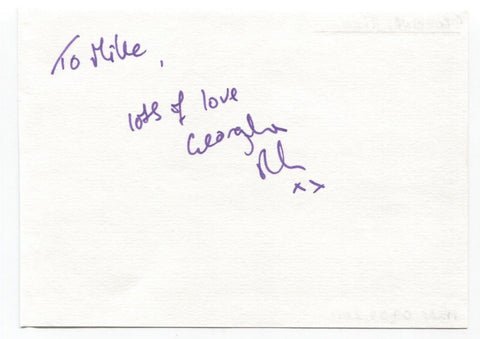 To Mike,
lots of love
Georgina
xx